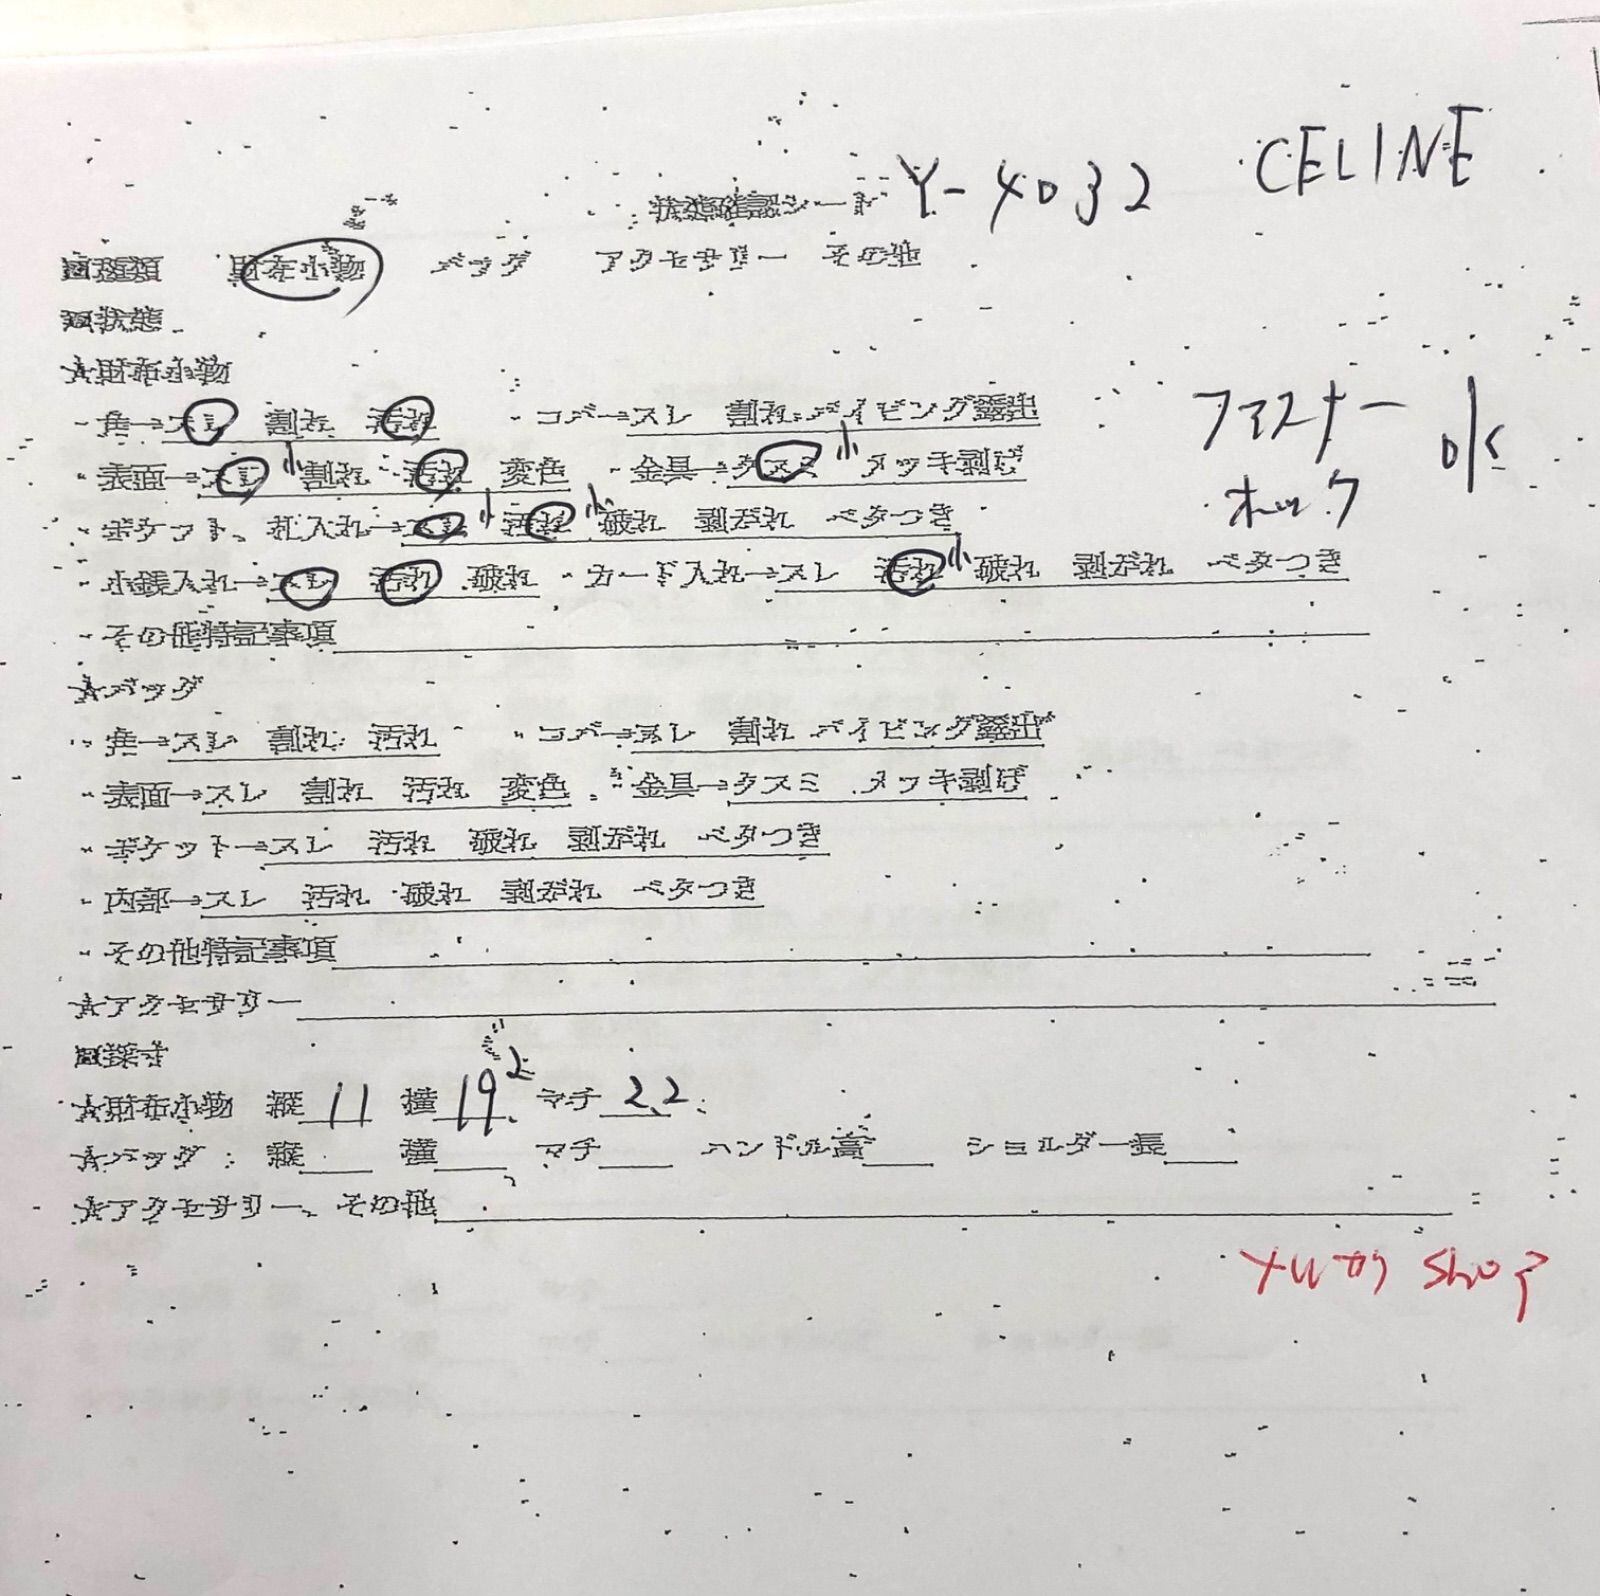 状態確認シート Y-4032 CELINE
□種類 財布小物 バッグ アクセサリー その他
□状態
☆財布小物
・角→スレ 割れ 汚れ ・コバ→スレ 割れ パイピング露出 ファスナー
・表面→スレ 小 割れ 汚れ 変色 ・金具→クスミ 小 メッキ剥げ ok
・ポケット、札入れ→スレ 小 汚れ 小 破れ 剥がれ ベタつき ホック
・小銭入れ→スレ 汚れ 破れ ・カード入れ→スレ 汚れ 小 破れ 剥がれ ベタつき
・その他特記事項
☆バッグ
・角→スレ 割れ 汚れ ・コバ→スレ 割れ パイピング露出
・表面→スレ 割れ 汚れ 変色 ・金具→クスミ メッキ剥げ
・ポケット→スレ 汚れ 破れ 剥がれ ベタつき
・内部→スレ 汚れ 破れ 剥がれ ベタつき
・その他特記事項
☆アクセサリー
□採寸
☆財布小物 縦 11 横 19.2 マチ 2.2
☆バッグ 縦 横 マチ ハンドル高 ショルダー長
☆アクセサリー、その他
shop